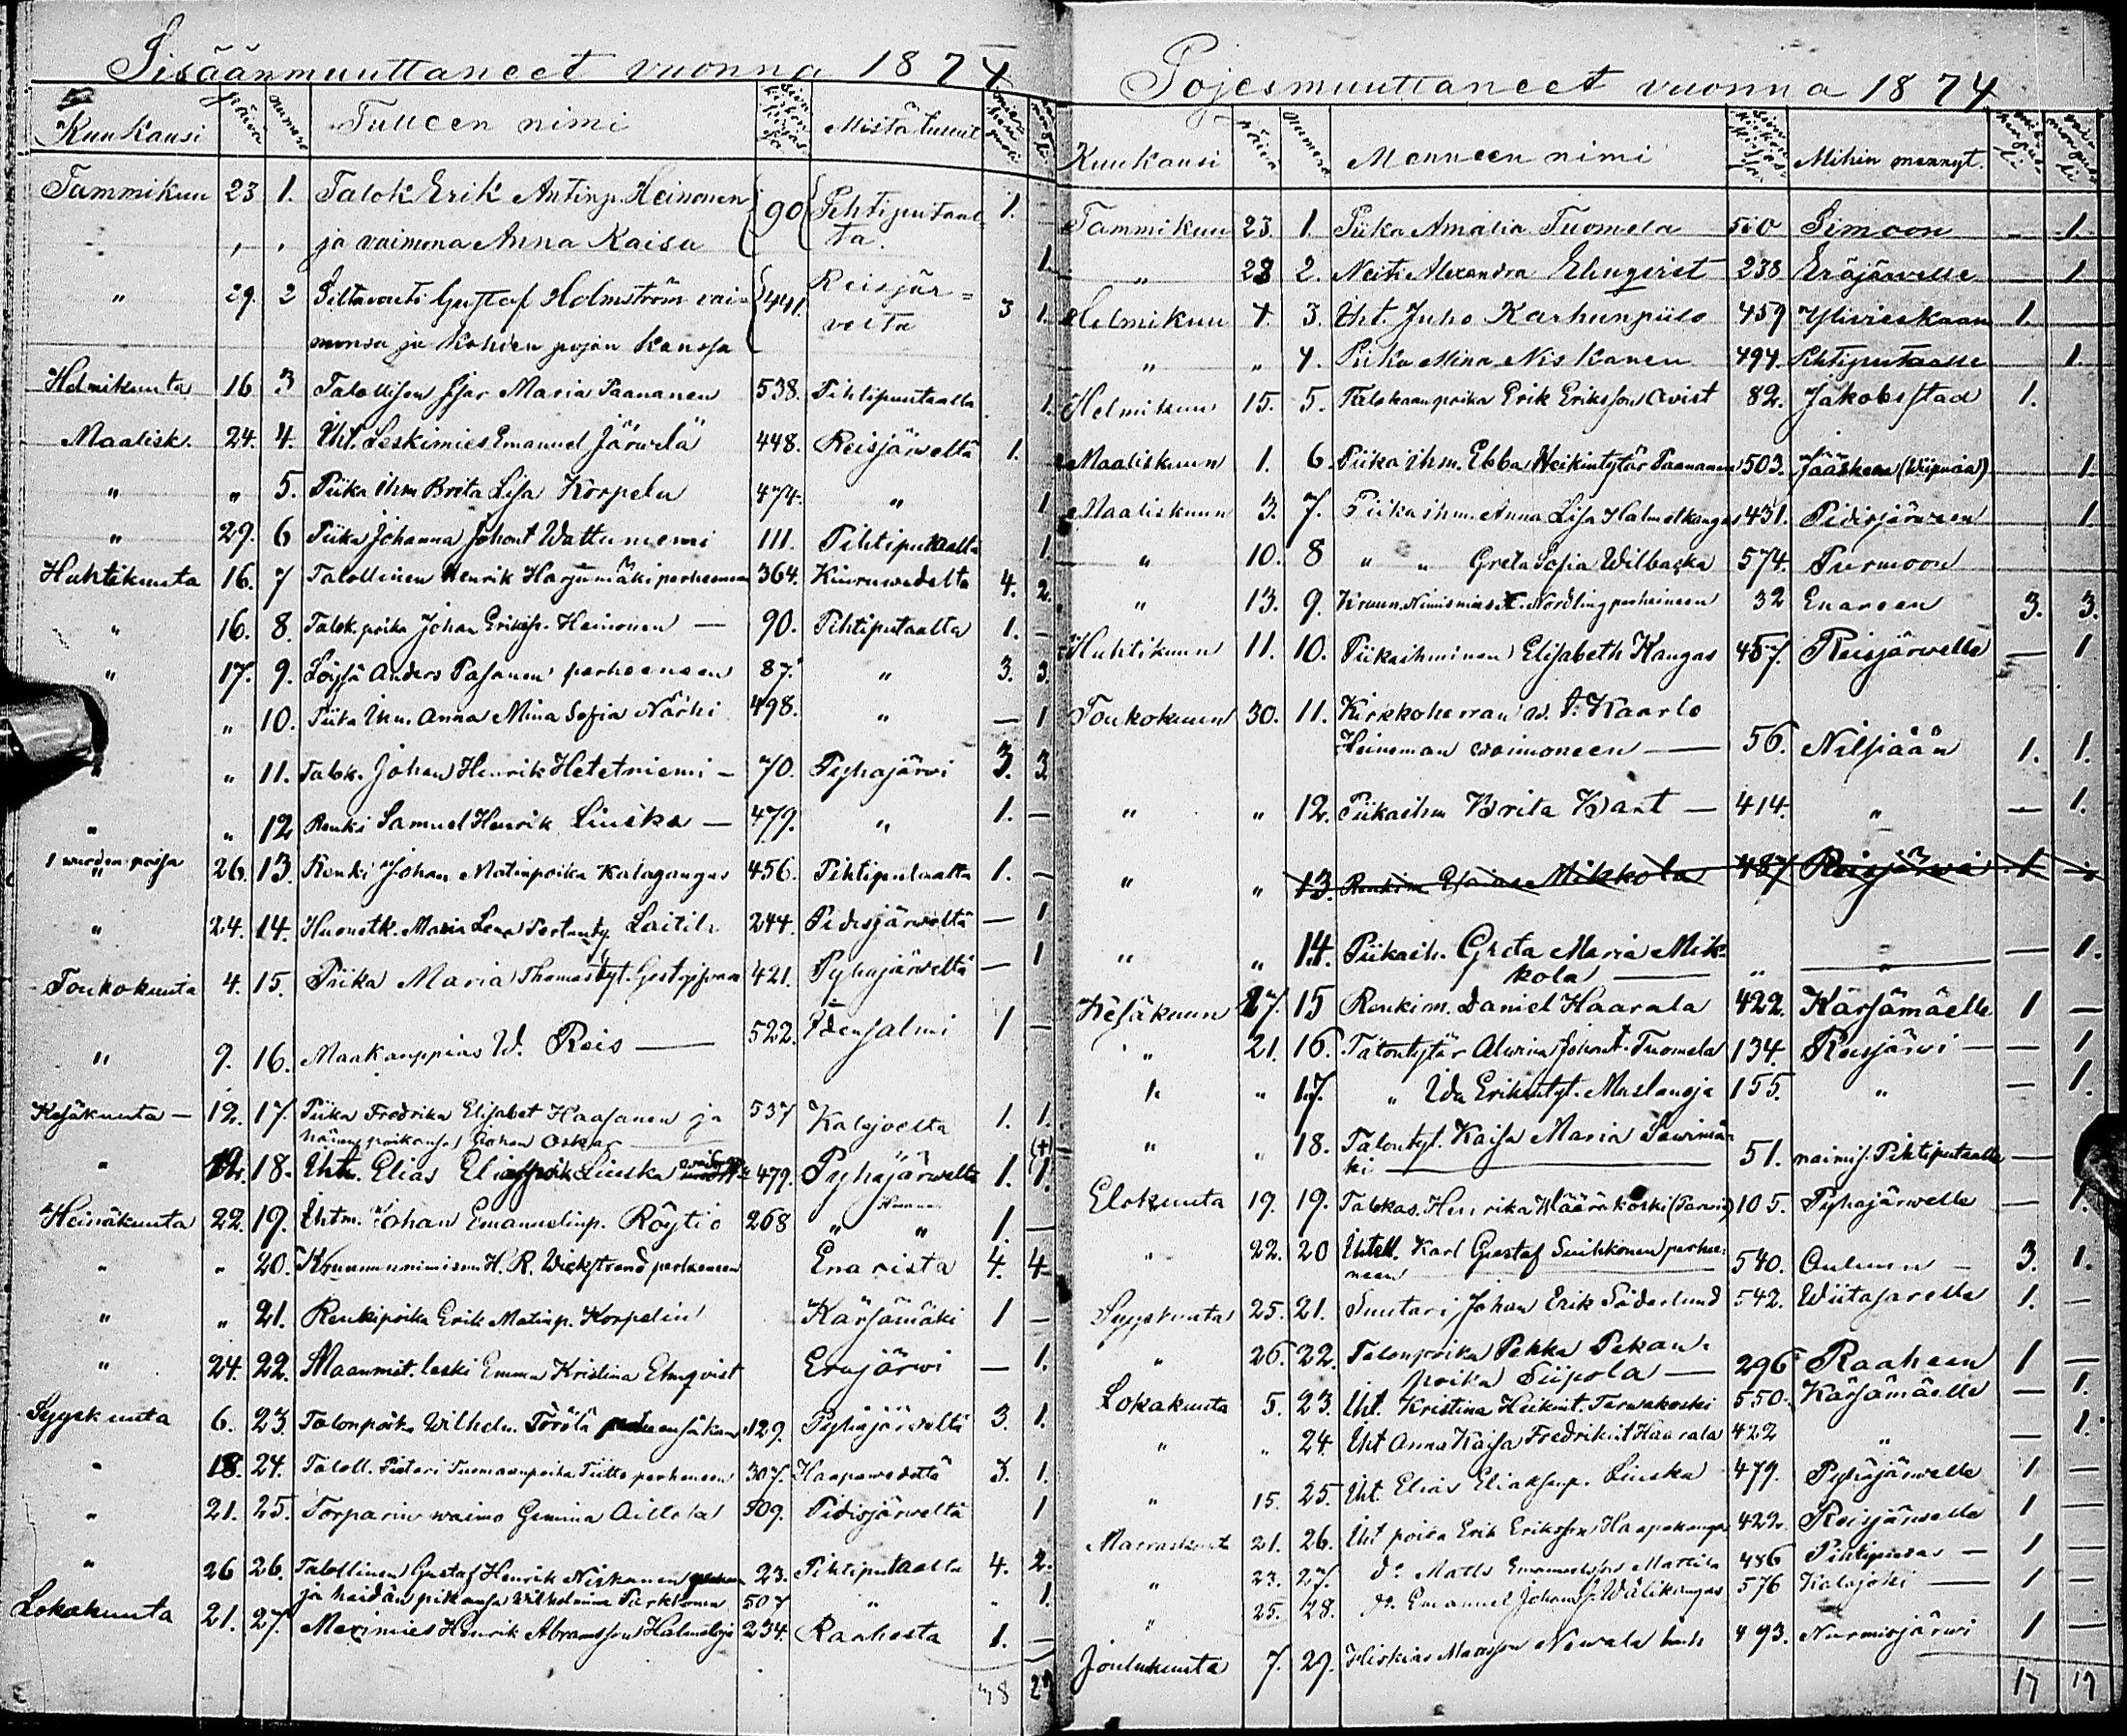 Sisäänmuuttaneet vuonna 1874
Kuukausi päivä numero Tulleen nimi Mistä tullut
Tammikuu 23 1. Talok Erik Antinp. Heinonen 90 Pihtiputaal= 1.
" , , ja vaimona Anna Kaisa ta. 1.
" 29. 2 Siltavouti Gustaf Holmström vai= 441. Reisjär= 3 1.
monsa ja kahden pojan kanssa veltä
Helmikuuta 16 3 Talollisen Maria Paananen 538. Pihtiputaalta 1.
Maalisk. 24. 4. Iht. Leskimies Emanuel Järwelä 448. Reisjärweltä 1.
" " 5. Piika ihm Brita Lisa Korpela 474. " 1
" 29. 6 Piika Johanna Johont Wattuniemi 111. Pihtiputaalta 1.
Huhtikuuta 16. 7 Talollinen Henrik Harjumäki perheineen 364. Kiuruwedelta 4. 2.
" 16. 8. Talok poika Johan Eriksp. Heinonen — 90. Pihtiputaalta 1. –
" 17. 9. Anders Pasanen perheeneen 87. " 3. 3.
" 10. Piika Ihm. Anna Mina Sofia Närhi 498. " — 1
" " 11. Talok. Johan Henrik Hetetniemi – 70. Pyhajärwi 3. 3
" " 12 Renki Samuel Henrik Liuska — 479. " 1. —
26. 13. Renki Johan Matinpoika Kalagangas 456. Pihtiputaalta 1. –
" 24. 14. Maria Lena Laitila 244. Pidisjärweltä — 1
Toukokuuta 4. 15. Piika Maria Thomastyt. 421. Pyhajärweltä — 1
" 9. 16. Maakauppias W. Reis — 522. Idensalmi 1 —
Kesäkuuta — 12. 17. Piika Fredrika Elisabet Haasanen ja 537 Kalajoelta 1. 1.
hänen poikansa Johan Oskar
" 19. 18. Iht. Elias Liuska 479. Pyhäjärwelta 1. 1.
Heinäkuuta 22. 19. Ihtm. Johan Emanuelinp. Röytiö 268 " " 1. —
" " 20. Kruununnimism H. R. Wickstrand perheneen Enarista 4. 4
" " 21. Renkipoika Erik Matinp. Korpelin Kärsämäki 1 —
" 24. 22. Maanmit. leski Emma Kristina Elmqvist Eräjärwi — 1.
Syyskuuta 6. 23. Talonpoika Wilhelm Törölä 129. Pyhäjärweltä 3. 1.
" 18. 24. Taloll. Pietari Tuomaanpoika Tiitto perheneen 307. Haapawedeltä 3. 1.
" 21. 25. Torparin waimo Gemina Aillola 509. Pidisjärweltä 1
" 26 26. Talollinen Gustaf Henrik Niskanen 23. Pihtiputaalta 4. 2.
ja heidän piikansa Wilhelmina Turkkonen 507 " 1.
Lokakuuta 21. 27. Merimies Henrik Abramsson Halmetoja 234. Raahesta 1. —
Pojesmuuttaneet vuonna 1874
Kuukausi päivä numero Menneen nimi Mihin mennyt.
Tammikuu 23. 1. Piika Amalia Tuomela 510 Simoon — 1.
" 28 2. Neiti Alexandra Elmqvist 238 Eräjärwelle 1.
Helmikuu 4. 3. Iht. Juho Karhunpiilo 459 Ylivieskaan 1.
" " 4. Piika Mina Niskanen 494. Pihtiputaalle 1.
Helmikuu 15. 5. Talokaanpoika Erik Eriksson Qvist 82. Jakobsstad 1.
Maaliskuun 1. 6. Piika ihm. Ebba Heikintytär Paananen 503. Jääskeen (Wiipuria) 1.
Maaliskuun 3. 7. Piika ihm. Anna Lisa Halmetkangas 431. Pidisjärween 1.
" 10. 8 " " Greta Sofia Wilbacka 574. Purmoon
" 13. 9. Kruun. Nimismies Nordling perheineen 32 Enareen 3. 3.
Huhtikuun 11. 10. Piikaihminen Elisabeth Kangas 457. Reisjärwelle — 1
Toukokuun 30. 11. Kirkkoherran Kaarlo
Heineman waimoneen — 56. Nilsiään 1. 1.
" " 12. Piikaihm Brita — 414. " — 1.
" " 13. Mikkola 487 Reisjärwi 1 –
" " 14. Piikaih. Greta Maria Mik=
kola — " " — 1.
Kesäkuun 17. 15 Renkim. Daniel Haarala 422. Kärsämäelle 1 —
" 21. 16. Talontytär Alwina Johont. Tuomela 134. Reisjärwi — — 1
" " 17. " Ida Erikintyt. Muslanoja 155. " — 1.
" " 18. Talontyt. Kaisa Maria Sawimä=
ki — 51. naimis. Pihtiputaalle —
Elokuuta 19. 19. Talokas. Henrika Määräkoski 105. Pyhajärwelle — 1.
" 22. 20 Karl Gustaf Suihkonen perhee=
neen 540. Ouluun – 3. 1.
Syyskuuta 25. 21. Suutari Johan Erik Söderlund 542. Wiitasarelle 1. —
" 26. 22. Talonpoika Pekka Pekan=
poika Siipola — 296 Raaheen 1 —
Lokakuuta 5. 23. Iht. Kristina Heikint. Tarwakoski 550. Kärsämäelle — 1.
" " 24. Iht Anna Kaisa Fredrikint Haarala 422 " — 1.
" 15. 25. Iht. Elias Eliaksenp. Liuska 479. Pyhäjärwelle 1 —
Marraskuut 21. 26. Iht poika Erik Eriksson Haapakangas 422. Reisjärwelle 1 —
" 23. 27. d:o Matts Emanuelsson Mattila 486 Pihtipudas — 1 —
" 25. 28. Emanuel Wälikangas 576 Kalajoki — 1 —
Joulukuuta 7. 29. Hiskias Newala 493. Nurmisjärwi 1 —
17 17